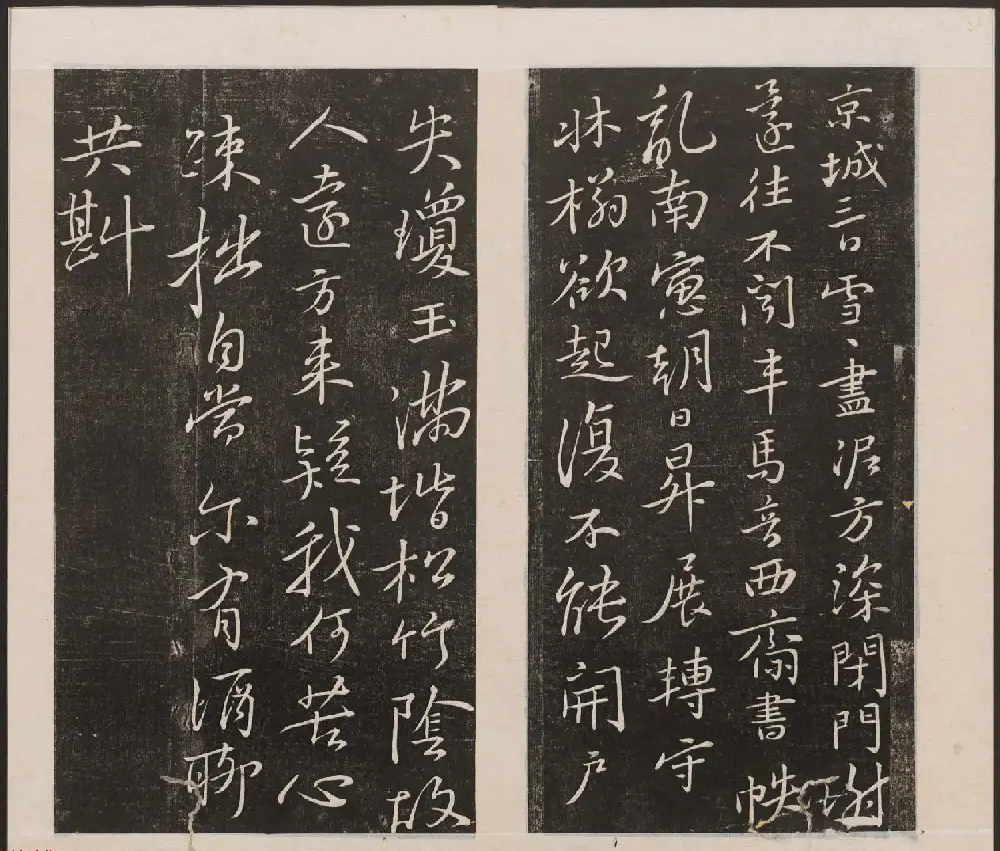 京城三日雪雪盡泥方深閉門謝
還往不聞車馬音西齋書帙
亂南窗朝日昇展轉守
牀榻欲起復不能開戶
失瓊玉滿堦松竹陰故
人遠方來疑我何苦心
疎拙自當尔有酒聊
共斟